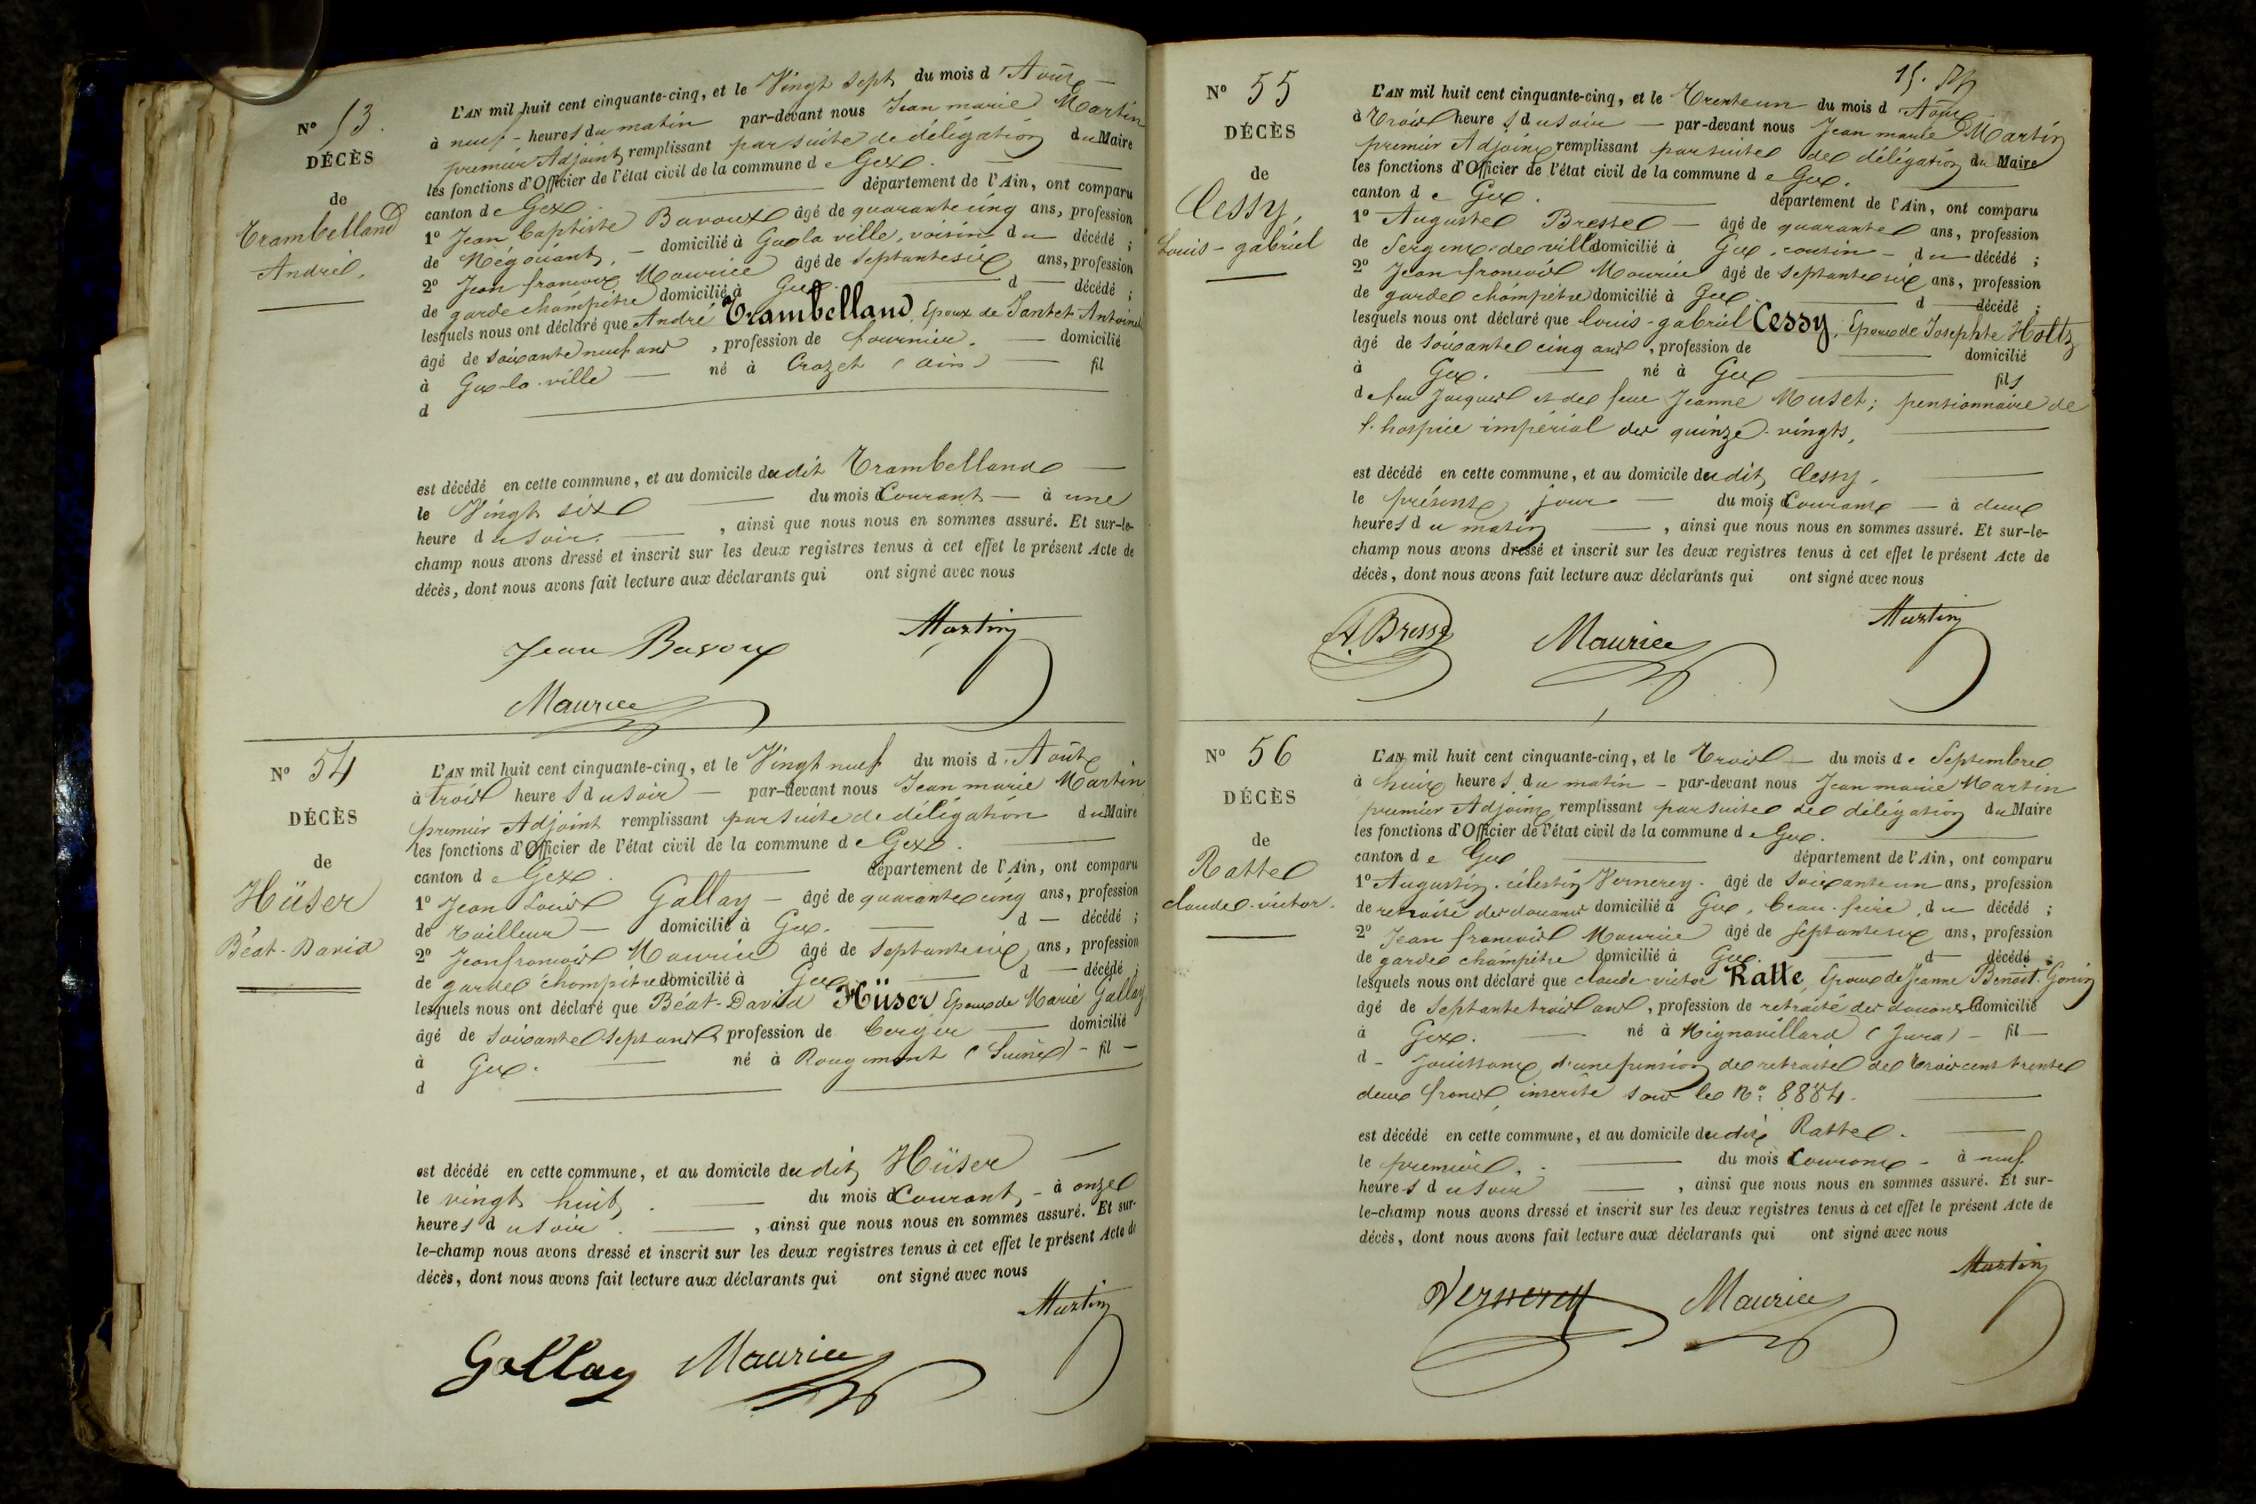 N° 53.
DÉCÈS
de
Trambelland
André.
L'AN mil huit cent cinquante-cinq, et le Vingt sept du mois d'Août
à neuf heures du matin par-devant nous Jean marie Martin
premier Adjoint remplissant par suite de délégation du Maire
les fonctions d'Officier de l'état civil de la commune de Gex.
canton de Gex. département de l'Ain, ont comparu
1° Jean baptiste Bavoux âgé de quarante cinq ans, profession
de Négociant, domicilié à Gex la ville, voisin du décédé ;
2° Jean francois Maurice âgé de septante six ans, profession
de garde champêtre domicilié à Gex. d décédé ;
lesquels nous ont déclaré que André Trambelland, Epoux de Jantet Antoinette
âgé de soixante neuf ans, profession de fournier. domicilié
à Gex-la-ville né à Crozet (ain) fil
d
est décédé en cette commune, et au domicile dudit Trambelland
le Vingt six du mois Courant à une
heure du soir. , ainsi que nous nous en sommes assuré. Et sur-le-
champ nous avons dressé et inscrit sur les deux registres tenus à cet effet le présent Acte de
décès, dont nous avons fait lecture aux déclarants qui ont signé avec nous
Jean Bavoux Martin
Maurice
N° 54
DÉCÈS
de
Hüser
Béat-David
L'AN mil huit cent cinquante-cinq, et le Vingt neuf du mois d'Août
à trois heures du soir par-devant nous Jean marie Martin
premier Adjoint remplissant par suite de délégation du Maire
les fonctions d'Officier de l'état civil de la commune de Gex.
canton de Gex. département de l'Ain, ont comparu
1° Jean Louis Gallay âgé de quarante cinq ans, profession
de tailleur domicilié à Gex. d décédé ;
2° Jean francois Maurice âgé de septante six ans, profession
de garde champêtre domicilié à Gex. d décédé ;
lesquels nous ont déclaré que Béat-David Hüser Epoux de Marie Gallay
âgé de soixante sept ans profession de berger domicilié
à Gex. né à Rougemont (Suisse) - fil -
d
est décédé en cette commune, et au domicile dudit Hüser
le vingt huit. du mois Courant, à onze
heures du soir. , ainsi que nous nous en sommes assuré. Et sur-
le-champ nous avons dressé et inscrit sur les deux registres tenus à cet effet le présent Acte de
décès, dont nous avons fait lecture aux déclarants qui ont signé avec nous
Martin
Gallay Maurice
15.
N° 55
DÉCÈS
de
Cessy,
Louis-gabriel
L'AN mil huit cent cinquante-cinq, et le Trente un du mois d'Août
à trois heures du soir par-devant nous Jean marie Martin
premier Adjoint remplissant par suite de délégation du Maire
les fonctions d'Officier de l'état civil de la commune de Gex.
canton de Gex. département de l'Ain, ont comparu
1° Auguste Bresse âgé de quarante ans, profession
de Sergent de ville domicilié à Gex, cousin du décédé ;
2° Jean francois Maurice âgé de septante six ans, profession
de garde champêtre domicilié à Gex. d décédé ;
lesquels nous ont déclaré que louis-gabriel Cessy, Epoux de Josephte Holtz
âgé de soixante cinq ans, profession de domicilié
à Gex. né à Gex fils
de feu Jacques et de feue Jeanne Muset; pensionnaire de
l'hospice impérial des quinze-vingts,
est décédé en cette commune, et au domicile dudit Cessy.
le présent jour du mois Courant à deux
heures du matin , ainsi que nous nous en sommes assuré. Et sur-le-
champ nous avons dressé et inscrit sur les deux registres tenus à cet effet le présent Acte de
décès, dont nous avons fait lecture aux déclarants qui ont signé avec nous
A. Bresse Maurice Martin
N° 56
DÉCÈS
de
Ratte
claude-victor.
L'AN mil huit cent cinquante-cinq, et le Trois du mois de Septembre
à huit heures du matin par-devant nous Jean marie Martin
premier Adjoint remplissant par suite de délégation du Maire
les fonctions d'Officier de l'état civil de la commune de Gex.
canton de Gex département de l'Ain, ont comparu
1° Augustin célestin Vernerey. âgé de soixante un ans, profession
de retraité des douanes domicilié à Gex, beau-frère, du décédé ;
2° Jean francois Maurice âgé de septante six ans, profession
de garde champêtre domicilié à Gex. d décédé ;
lesquels nous ont déclaré que claude-victor Ratte, Epoux de Jeanne Benoit-Gonin
âgé de septante trois ans, profession de retraité des douanes domicilié
à Gex. né à Mignovillard (Jura) - fil -
d - Jouissant d'une pension de retraite de trois cent trente
deux francs, inscrite sous le N°: 8884.
est décédé en cette commune, et au domicile dudit Ratte.
le premier, du mois Courant - à neuf
heures du soir , ainsi que nous nous en sommes assuré. Et sur-
le-champ nous avons dressé et inscrit sur les deux registres tenus à cet effet le présent Acte de
décès, dont nous avons fait lecture aux déclarants qui ont signé avec nous
Martin
Vernerey Maurice